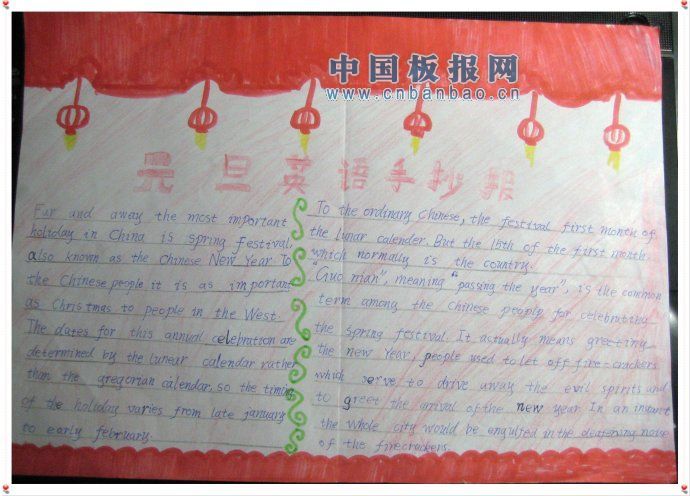 中国板报网
www.cnbanbao.cn
元旦英语手抄报
Far and away the most important
holiday in China is spring Festival,
also known as the Chinese New Year. To
the Chinese people it is as important
as Christmas to people in the West.
The dates for this annual celebration are
determined by the lunear calendar rather
than the gregorian calendar, so the timing
of the holiday varies from late january
to early february.
To the ordinary Chinese, the festival first month of
the lunar calender. But the 15th of the first month
which normally is the country.
"Guo nian", meaning "passing the year", is the common
term among the Chinese people for celebrating
the spring festival. It actually means greeting
the new Year, people used to let off fire-crackers
which serve to drive away the evil spirits and
to greet the arrival of the new year. In an instant
the whole city would be engulfed in the deafening noise
of the firecrackers.